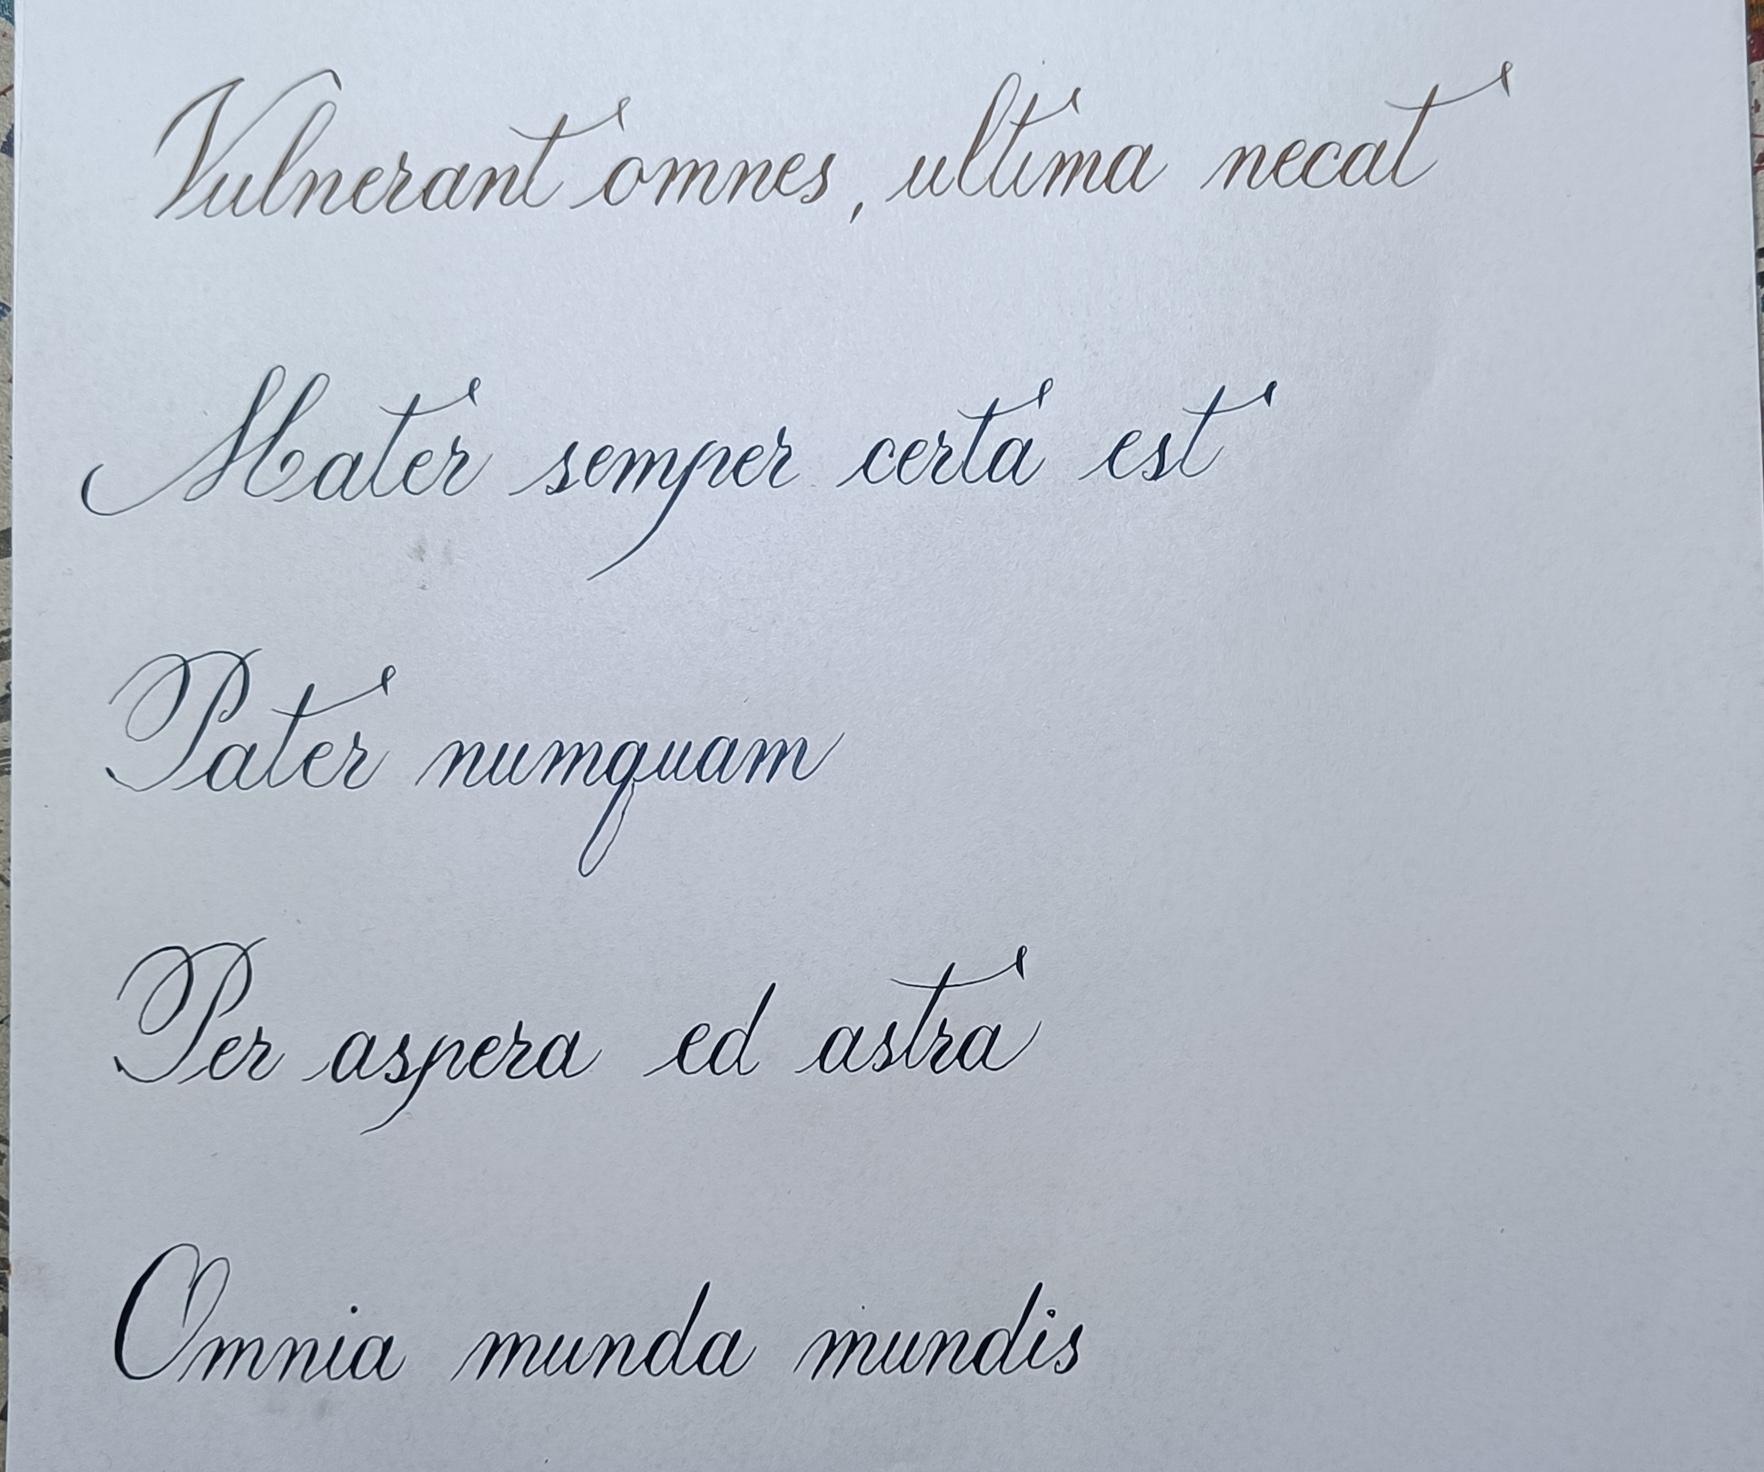 Vulnerant omnes, ultima necat
Mater semper certa est
Pater numquam
Per aspera ed astra
Omnia munda mundis